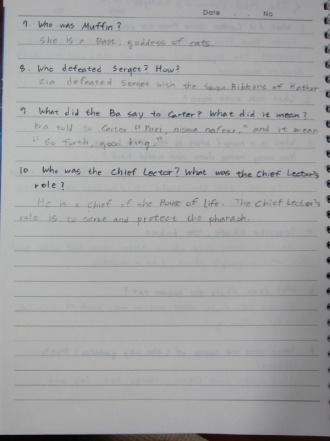 Date No
7. Who was Muffin?
She is a Bast, goddess of cats.
8. Who defeated Serget? How?
Zia defeated Serget with the Seven Ribbons of Hathor
9. What did the Ba say to Carter? What did it mean?
Ba told to Carter " nisou nafeer," and it mean
"Go forth, good king."
10. Who was the Chief Lector? What was the Chief Lector's
role?
He is a chief of the House of life. The Chief Lector's
role is to serve and protect the pharaoh.